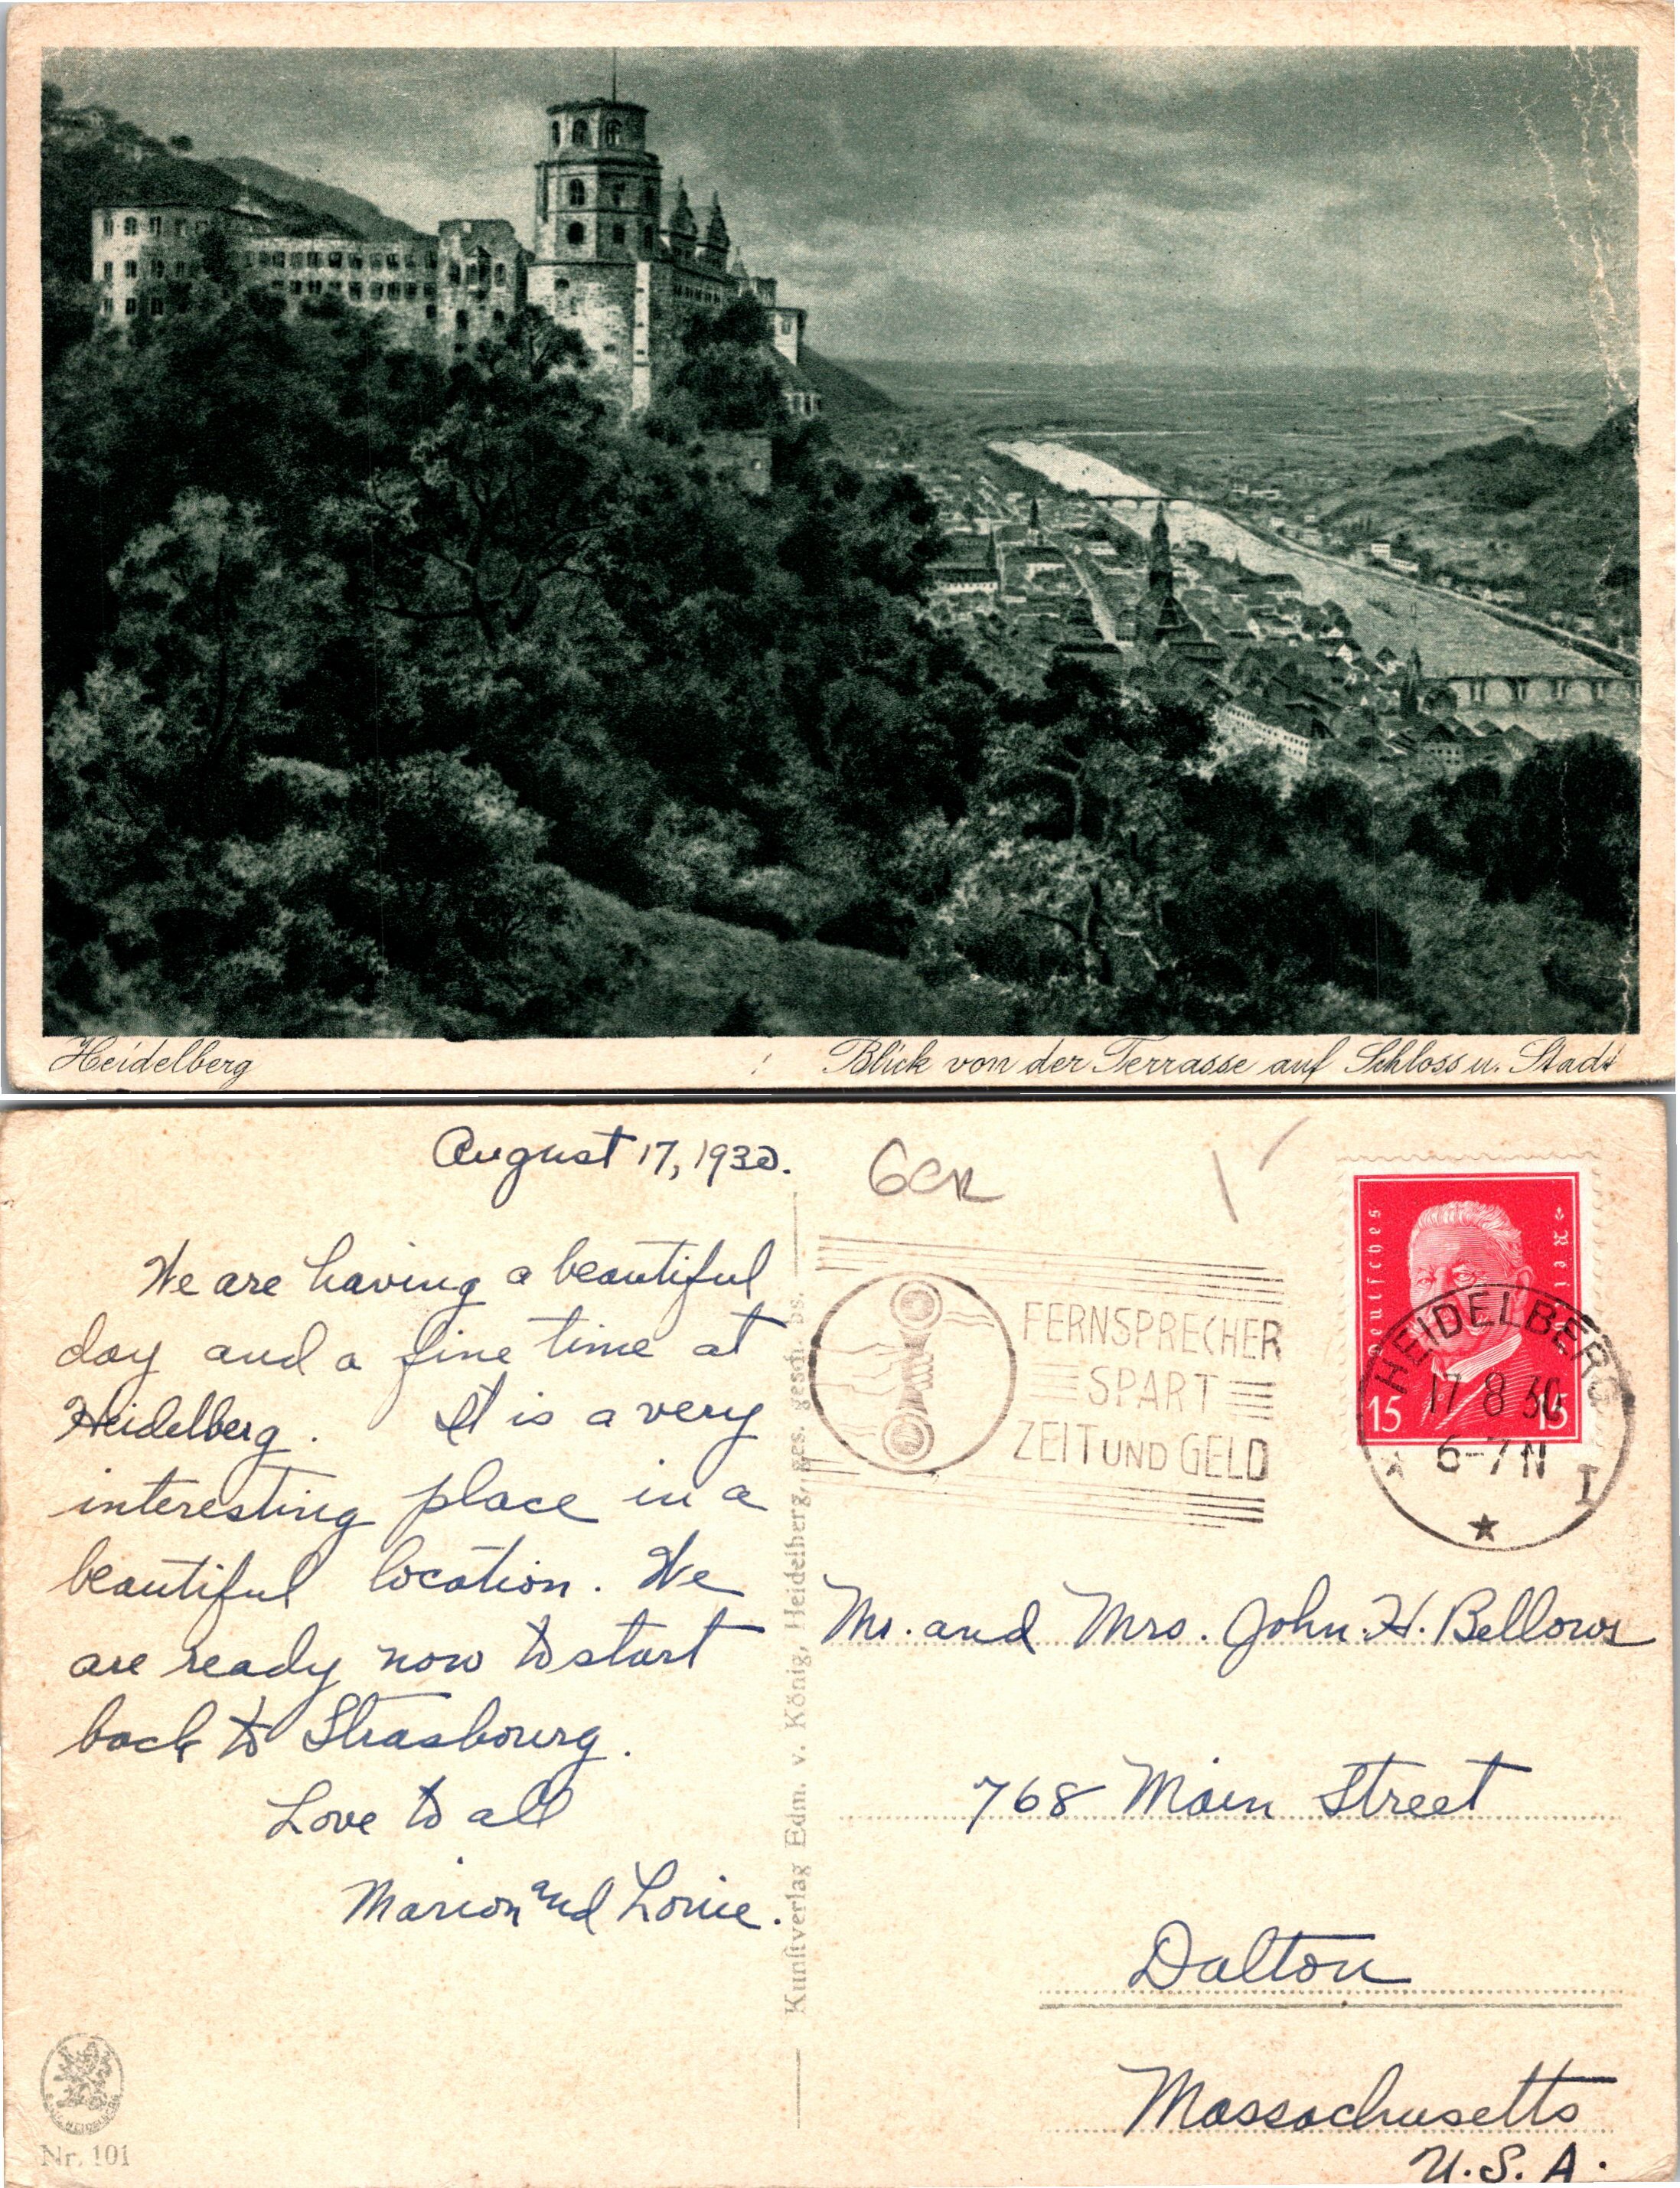 Heidelberg
Blick von der Terrasse auf Schloss u. Stadt
August 17, 1930.
We are having a beautiful
day and a fine time at
Heidelberg. It is a very
interesting place in a
beautiful location. We
are ready now to start
back to Strasbourg.
Love to all
Marion and Lorne.
Nr. 101
Kunſtverlag Edm. v. König, Heidelberg, ges. gesch. bs.
Ger
FERNSPRECHER
SPART
ZEIT UND GELD
Deutſches Rei
15 15
HEIDELBERG
17 8 30
6-7 N
I
Mr. and Mrs. John H. Bellows
768 Main Street
Dalton
Massachusetts
U.S.A.